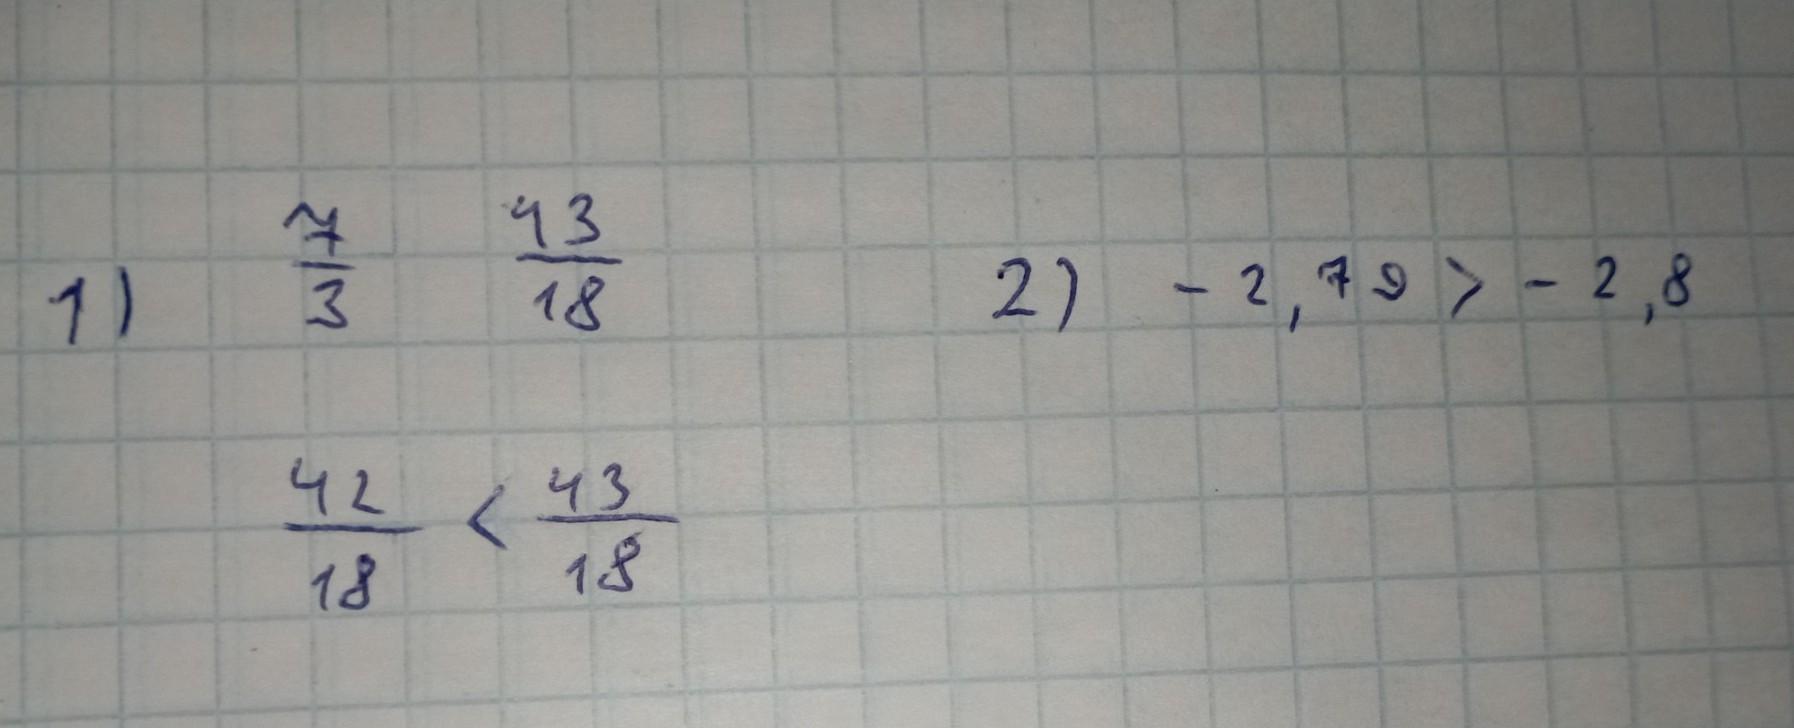 1) 7/3 43/18 2) -2,79 > -2,8
42/18 < 43/18